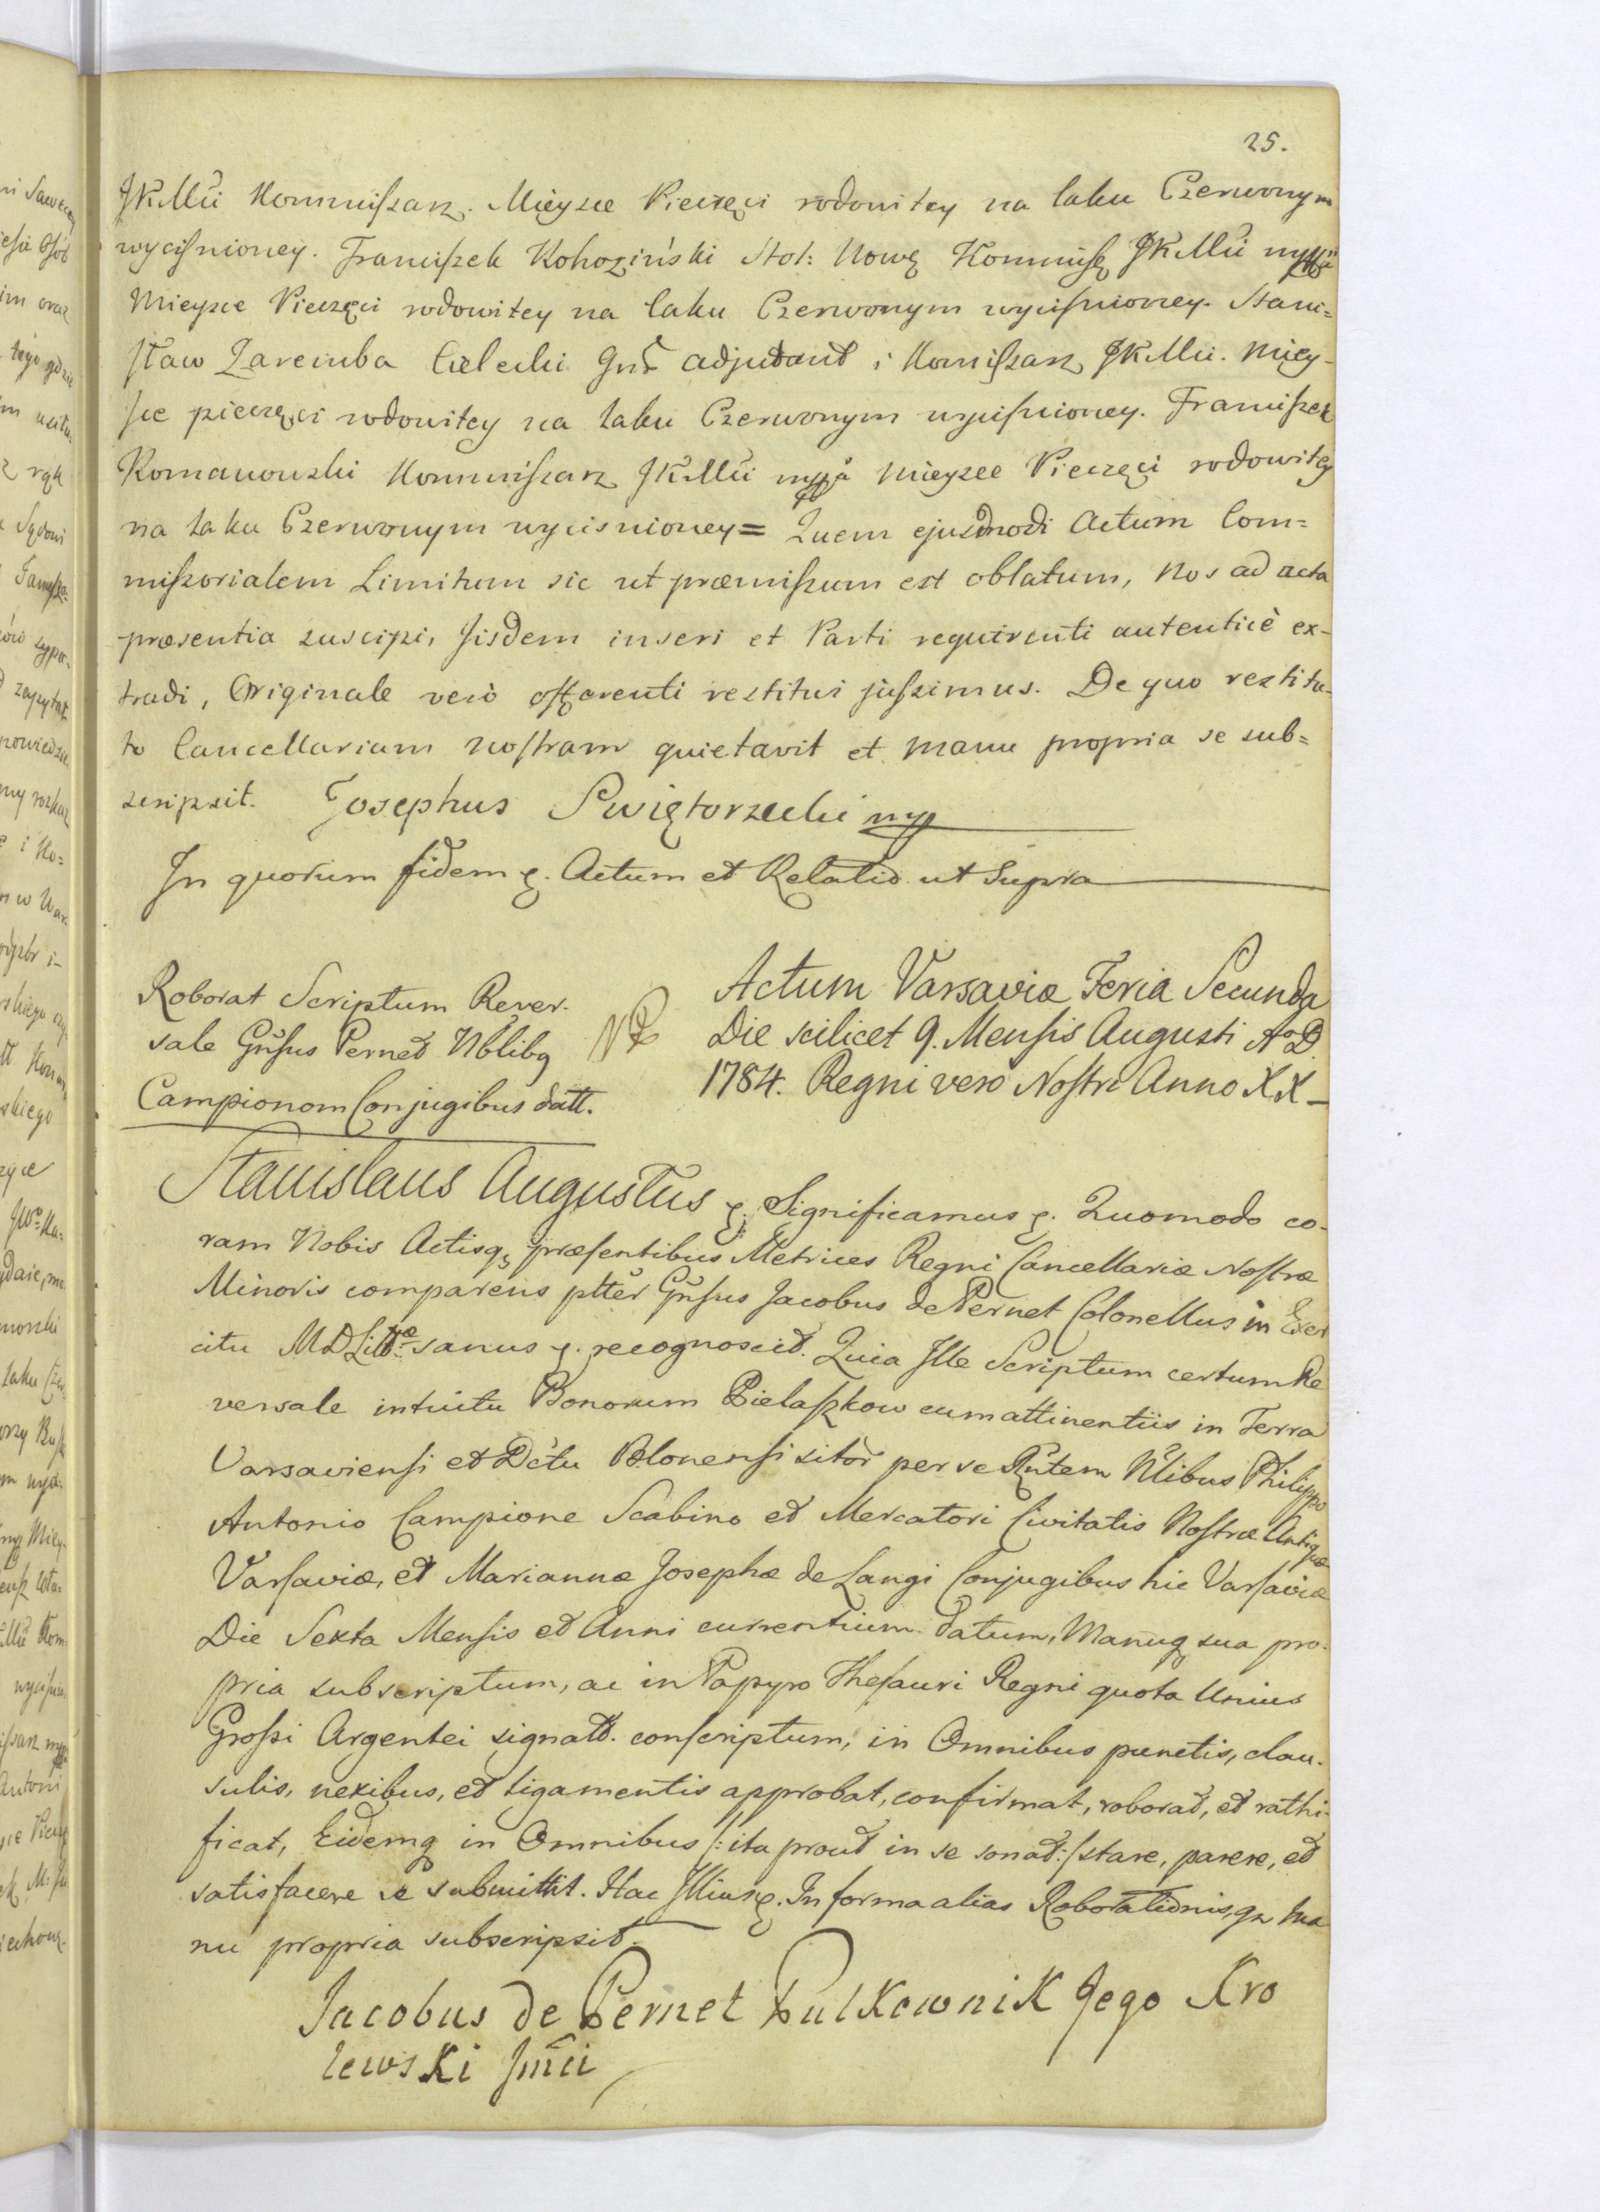 25.
JKMci Kommiszarz. Mieysce Pieczęci rodowitey na laku Czerwonym
wyciſnioney. Franciszek Kohoziński Stol: Nowg Kommisz JKMci mppa
Mieysce Pieczęci rodowitey na laku Czerwonym wyciſnioney. Stani=
sław Zaremba Cielecki Gnrł adjutant i Komiszarz JKMci. Miey-
sce pieczęci rodowitey na laku Czerwonym wyciſnioney. Franciszek
Romanowski Kommiszarz JKMci mppa Mieysce Pieczęci rodowitey
na laku Czerwonym wycisnioney = Quem ejusmodi Actum Com=
miszorialem Limitum sic ut præmiszum est oblatum, Nos ad acta
præsentia suscipi, Jisdem inseri et Parti requirenti autenticè ex-
tradi, Originale verò offerenti restitui juſsimus. De quo restitu-
to Cancellariam noſtram quietavit et manu propria se sub=
scripsit. Josephus Swiętorzecki mp
In quorum fidem &. Actum et Relatio ut Supra
Roborat Scriptum Rever-
sale Gnſus Pernet Nblibq
Campionom Conjugibus datt.
Actum Varsaviæ Feria Secunda
Die scilicet 9. Menſis Augusti A° D.
1784. Regni vero Noſtri Anno XX
Stanislaus Augustus &. Significamus &. Quomodo co-
ram Nobis Actisq præſentibus Metrices Regni Cancellariæ Noſtræ
Minoris comparens pltter Gnſus Jacobus de Pernet Colonellus in Exer
citu MDLittæ sanus &. recognoscit. Quia Ille Scriptum certum Re
versale intuitu Bonorum Bielaſzkow cum attinentiis in Terra
Varsaviensi et Dctu Blonenſi sitor per se Rntem Nlibus Philippo
Antonio Campione Scabino et Mercatori Civitatis Noſtræ Antiquæ
Varſaviæ, et Mariannæ Josephæ de Langi Conjugibus hic Varſaviæ
Die Sexta Menſis et Anni currentium datum, Manuq sua pro-
pria subscriptum, ac in Papyro Theſauri Regni quota Unius
Groſsi Argentei signatt. conſcriptum, in Omnibus punctis, clau-
sulis, nexibus, et ligamentis approbat, confirmat, roborat, et rathi-
ficat, Eidemq in Omnibus /: ita prout in se sonat :/ stare, parere, et
satisfacere se submittit. Hac Illius &. In forma alias Roborationis, qz Ma
nu propria subscripsit.
Jacobus de Pernet Pulkownik Jego Kro
lewski Jmci